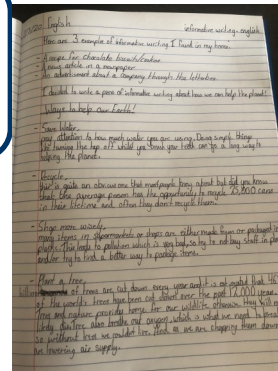 English informative writing - english
Here are 3 example of informative writing I found in my home.
- A recipe for chocolate biscuits/cookies
- A news article in a newspaper
- An advertisement about a company through the letterbox
I decided to write a piece of informative writing about how we can help the planet.
Ways to help our Earth!
- Save Water.
Pay attention to how much water you are using. Doing simple things
like turning the tap off whilst you brush your teeth can go a long way to
helping the planet.
- Recycle.
quite an obvious one that most people know about but did you know
that the average person has the opportunity to recycle 25,000 cans
in their lifetime and often they don't recycle them.
- Shop more wisely.
Many items in supermarkets or shops are either made from or packaged in
plastic. This leads to pollution which is very bad, so try to not buy stuff in
and/or try to find a better way to package items.
- Plant a tree.
billions of trees are cut down every year and it is estimated that 46%
of the world's trees have been cut down over the past 12,000 years.
Trees and nature provide homes for our wildlife otherwise they
trees also breathe out oxygen which is what we need to
so without trees we wouldn't live. And as we are chopping them down
are lowering air supply.